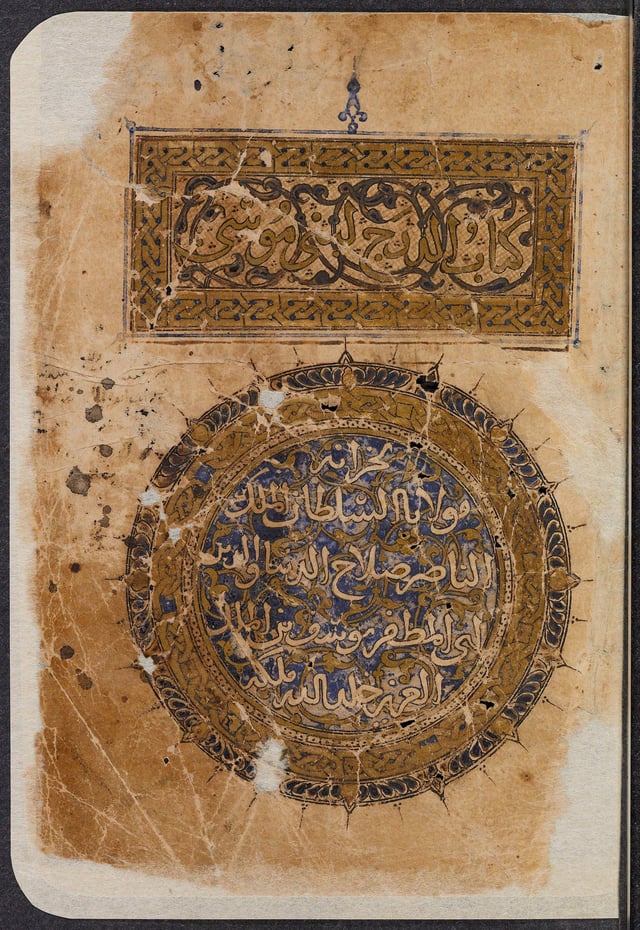 كتاب لبنوا موسى
لخزانة
مولانا السلطان الملك
الناصر صلاح الدنيا والدين
ابي المظفر يوسف بن الملك
العزيز خلد الله ملكه